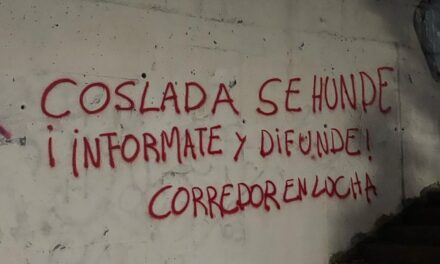 COSLADA SE HUNDE
¡INFORMATE Y DIFUNDE!
CORREDOR EN LUCHA